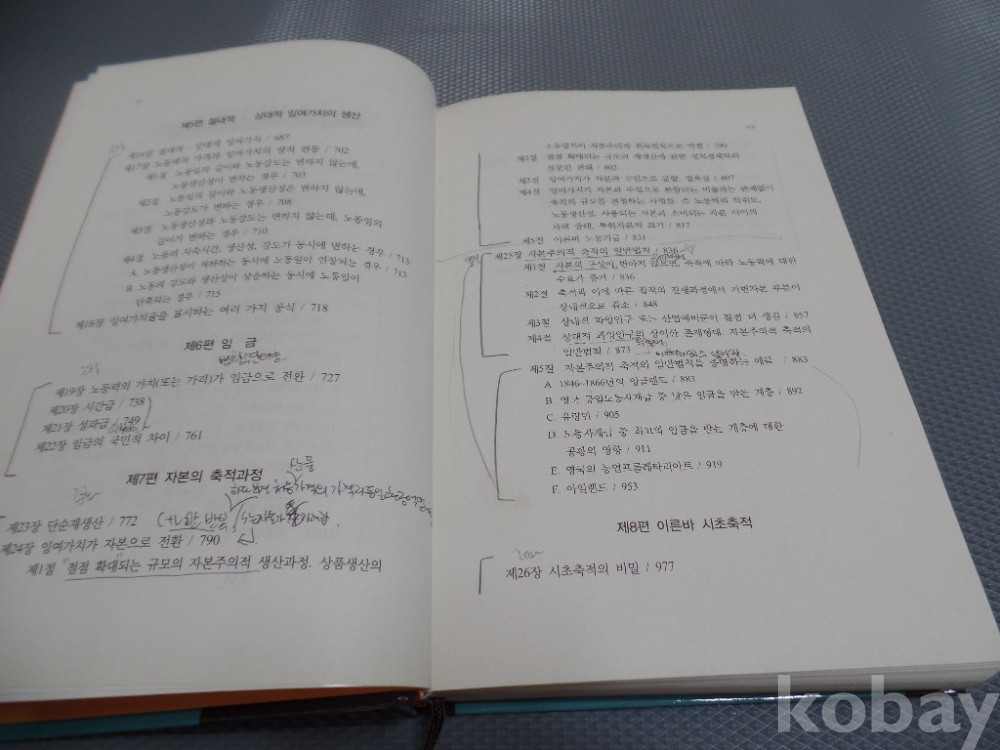 제5편 절대적 · 상대적 잉여가치의 생산
제16장 절대적 · 상대적 잉여가치 / 687
제17장 노동력의 가격과 잉여가치의 양적 변동 / 702
제1절 노동일의 길이와 노동강도는 변하지 않는데,
노동생산성이 변하는 경우 / 703
제2절 노동일의 길이와 노동생산성은 변하지 않는데,
노동강도가 변하는 경우 / 708
제3절 노동생산성과 노동강도는 변하지 않는데, 노동일의
길이가 변하는 경우 / 710
제4절 노동의 지속시간, 생산성, 강도가 동시에 변하는 경우 / 713
A. 노동생산성이 저하하는 동시에 노동일이 연장되는 경우 / 713
B. 노동의 강도와 생산성이 상승하는 동시에 노동일이
단축되는 경우 / 715
제18장 잉여가치율을 표시하는 여러 가지 공식 / 718
제6편 임 금
제19장 노동력의 가치(또는 가격)가 임금으로 전환 / 727
제20장 시간급 / 738
제21장 성과급 / 749
제22장 임금의 국민적 차이 / 761
제7편 자본의 축적과정
상품
제23장 단순재생산 / 772
제24장 잉여가치가 자본으로 전환 / 790
제1절 점점 확대되는 규모의 자본주의적 생산과정. 상품생산의
소유법칙이 자본주의적 취득법칙으로 바뀜 / 790
제2절 점점 확대되는 규모의 재생산에 관한 정치경제학의
잘못된 견해 / 802
제3절 잉여가치가 자본과 수입으로 분할. 절욕설 / 807
제4절 잉여가치가 자본과 수입으로 분할되는 비율과는 관계없이
축적의 규모를 결정하는 사정들. 즉 노동력의 착취도,
노동생산성, 사용되는 자본과 소비되는 자본 사이의
차액 증대, 투하자본의 크기 / 817
제5절 이른바 노동기금 / 831
제25장 자본주의적 축적의 일반법칙 / 836
제1절 자본의 구성이 변하지 않으면, 축적에 따라 노동력에 대한
수요가 증가 / 836
제2절 축적과 이에 따른 집적의 진행과정에서 가변자본 부분이
상대적으로 감소 / 848
제3절 상대적 과잉인구 또는 산업예비군이 점점 더 생김 / 857
제4절 상대적 과잉인구의 상이한 존재형태. 자본주의적 축적의
일반법칙 / 873
제5절 자본주의적 축적의 일반법칙을 증명하는 예들 / 883
A. 1846-1866년의 잉글랜드 / 883
B. 영국 공업노동자계급 중 낮은 임금을 받는 계층 / 892
C. 유랑민 / 905
D. 노동자계급 중 최고의 임금을 받는 계층에 대한
공황의 영향 / 911
E. 영국의 농업프롤레타리아트 / 919
F. 아일랜드 / 953
제8편 이른바 시초축적
제26장 시초축적의 비밀 / 977
kobay